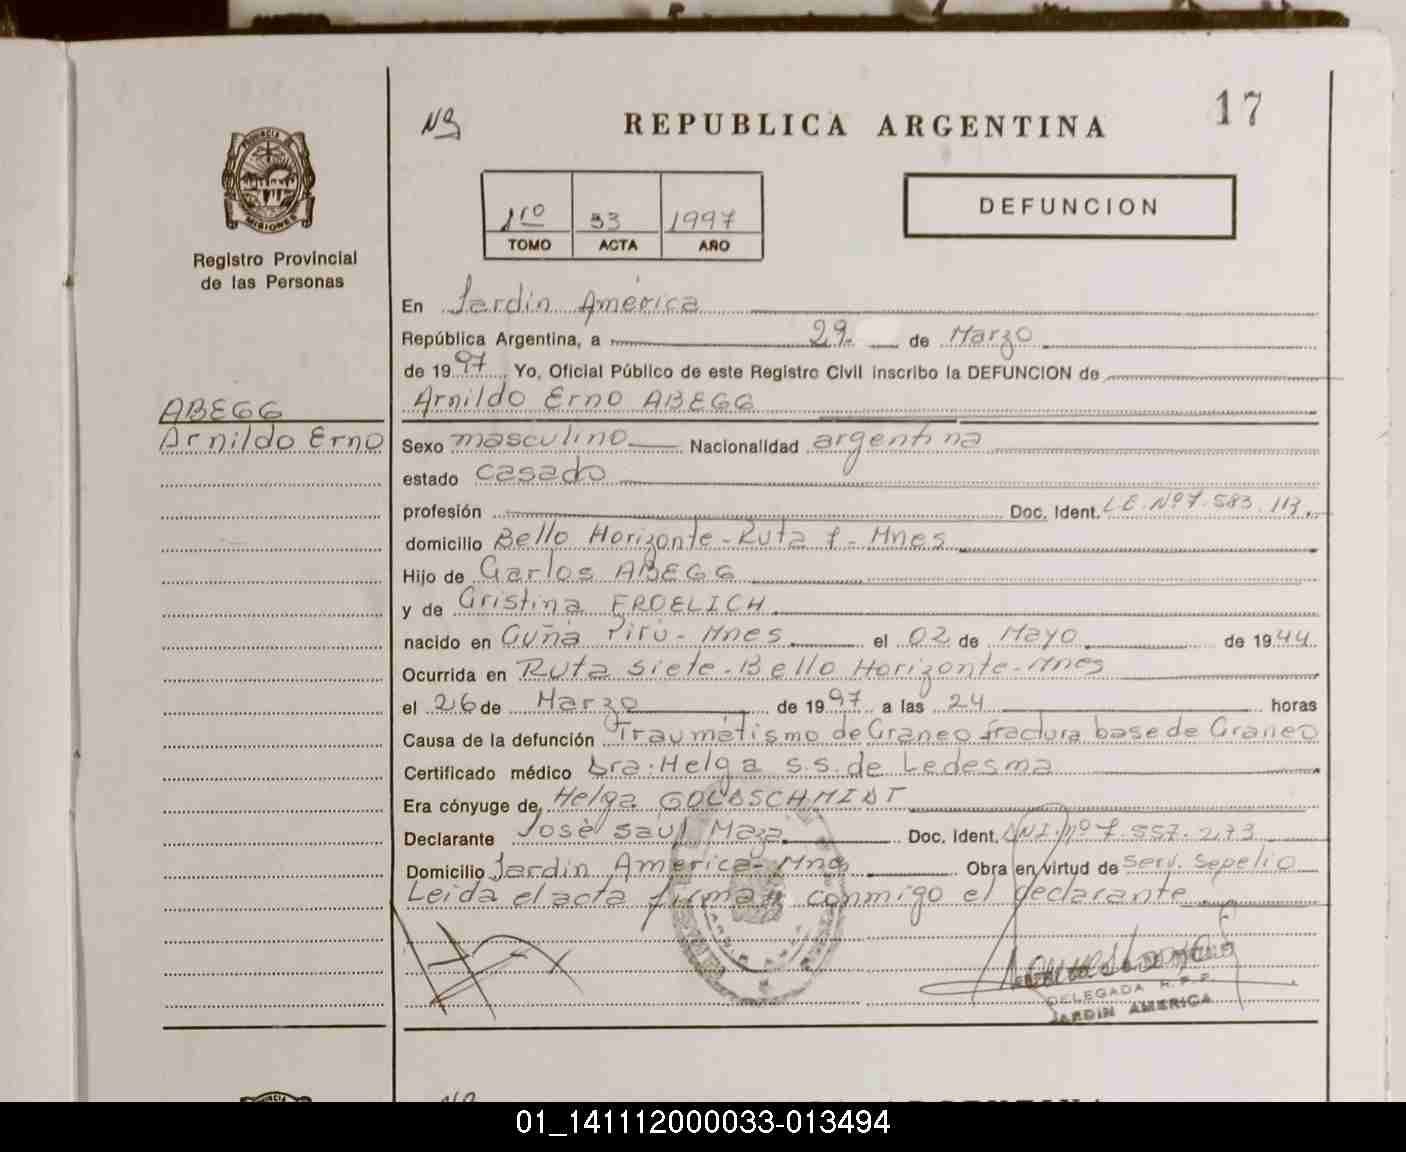 17
REPUBLICA ARGENTINA
PROVINCIA DE
MISIONES
Registro Provincial
de las Personas
1ro 33 1997
TOMO ACTA AÑO
DEFUNCION
En Jardin América
República Argentina, a 29 de Marzo
de 1997 Yo, Oficial Público de este Registro Civil inscribo la DEFUNCION de
ABEGG
Arnildo Erno ABEGG
Arnildo Erno
Sexo masculino Nacionalidad argentina
estado casado
profesión Doc. Ident. L.E. Nº 7.583.113.
domicilio Bello Horizonte - Ruta 7 - Mnes
Hijo de Carlos ABEGG
y de Cristina FROELICH
nacido en Cuñá Pirú - Mnes el 02 de Mayo de 1944
Ocurrida en Ruta siete - Bello Horizonte - Mnes
el 26 de Marzo de 1997 a las 24 horas
Causa de la defunción Traumatismo de Craneo fractura base de Craneo
Certificado médico Dra: Helga s.s. de Ledesma
Era cónyuge de Helga GOLDSCHMIDT
Declarante José saúl Maza Doc. Ident. DNI. nº 7.557.273
Domicilio Jardin America - Mnes Obra en virtud de serv. sepelio
Leida el acta firman conmigo el declarante
DELEGADA R.P.P.
JARDIN AMERICA
01_141112000033-013494